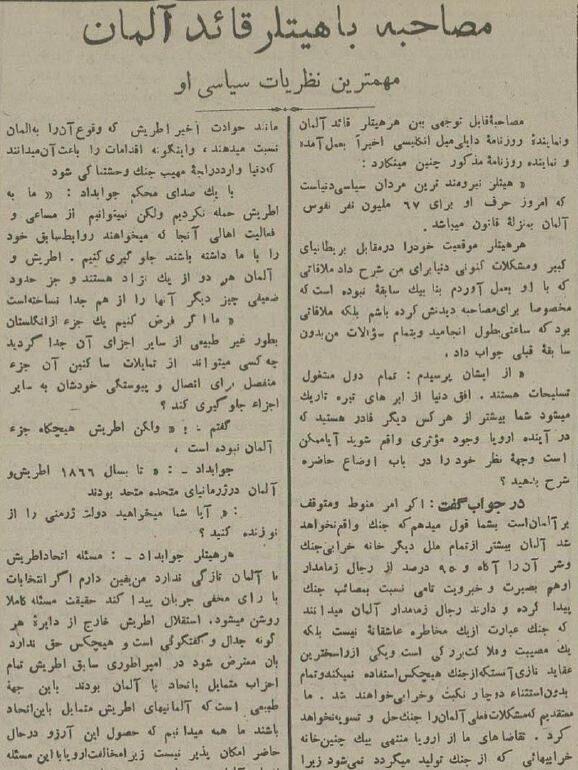 مصاحبه با هیتلر قائد آلمان
مهمترین نظریات سیاسی او
مصاحبهٔ قابل توجهی بین هرهیتلر قائد آلمان
ونمایندهٔ روزنامهٔ دایلی میل انگلیسی اخیراً بعمل آمده
و نماینده روزنامهٔ مذکور چنین مینگارد :
« هیتلر نیرومند ترین مردان سیاسی دنیاست
که امروز حرف او برای ٦٧ ملیون نفر نفوس
آلمان بمنزلهٔ قانون میباشد .
هرهیتلر موقعیت خودرا درمقابل بریطانیای
کبیر ومشکلات کنونی دنیا برای من شرح داد ملاقاتی
که با او بعمل آوردم بنا بیك سابقهٔ نبوده است که
مخصوصا برای مصاحبه دیدنش کرده باشم بلکه ملاقاتی
بود که ساعتی بطول انجامید وبتمام سؤالات من بدون
سابقهٔ قبلی جواب داد .
« از ایشان پرسیدم : تمام دول مشغول
تسلیحات هستند . افق دنیا از ابر های تیره تاریك
میشود شما بیشتر از هرکس دیگر قادر هستید که
در آینده اروپا وجود مؤثری واقع شوید آیا ممکن
است وجههٔ نظر خود را در باب اوضاع حاضره
شرح بدهید ؟
در جواب گفت : اکر امر منوط ومتوقف
برآلمان است بشما قول میدهم که جنك واقع نخواهد
شد آلمان بیشتر از تمام ملل دیگر خانه خرابی جنك
وشر آن را آگاه و ٩٥ درصد از رجال زمامدار
اوهم بصیرت و خبرویت تامی نسبت بمصائب جنك
پیدا کرده و دارند رجال زمامدار آلمان میدانند
که جنك عبارت ازیك مخاطره عاشقانهٔ نیست بلکه
یك مصیبت وفلاکت بزرگی است ویکی ازراسخترین
عقاید نازی آنستکه از جنك هیچکس استفاده نمیکند وتمام
بدون استثناء دوچار نکبت وخرابی خواهند شد . ما
معتقدیم که مشکلات فعلی آلمان را جنك حل و تسویه نخواهد
کرد . تقاضاهای ما از اروپا منتهی بیك چنین خانه
خرابیهائی که از جنك تولید میگردد نمی شود زیرا
مانند حوادث اخیر اطریش که وقوع آن را به آلمان
نسبت میدهند ، واینگونه اقدامات را باعث آن میدانند
که دنیا وارد درجهٔ مهیب جنك وحشتناکی شود
با یك صدای محکم جوابداد : « ما به
اطریش حمله نکردیم ولکن نمیتوانیم از مساعی و
فعالیت اهالی آنجا که میخواهند روابط سابق خود
را با ما داشته باشند جلو گیری کنیم . اطریش و
آلمان هر دو از یك نژاد هستند و جز حدود
ضعیفی چیز دیگر آنها را از هم جدا نساخته است
« ما اگر فرض کنیم یك جزء از انگلستان
بطور غیر طبیعی از سایر اجزای آن جدا گردید
چه کسی میتواند از تمایلات ساکنین آن جزء
منفصل برای اتصال و پیوستگی خودشان به سایر
اجزاء جلو گیری کند ؟
گفتم - : « ولکن اطریش هیچکاه جزء
آلمان نبوده است ،
جوابداد - : « تا بسال ١٨٦٦ اطریش و
آلمان درژرمانیای متحده متحد بودند
: « آیا شما میخواهید دولت ژرمنی را از
نو زنده کنید ؟
هرهیتلر جوابداد - : مسئله اتحاد اطریش
با آلمان تازگی ندارد من یقین دارم اگر انتخابات
با رای مخفی جریان پیدا کند حقیقت مسئله کاملا
روشن میشود، استقلال اطریش خارج از دایرهٔ هر
گونه جدال و گفتگوئی است و هیچکس حق ندارد
بان معترض شود در امپراطوری سابق اطریش تمام
احزاب متمایل باتحاد با آلمان بودند باین جههٔ
طبیعی است که آلمانیهای اطریش متمایل باین اتحاد
باشند ما همه میدانیم که حصول این آرزو درحال
حاضر امکان پذیر نیست زیرا مخالفت اروپا با این مسئله